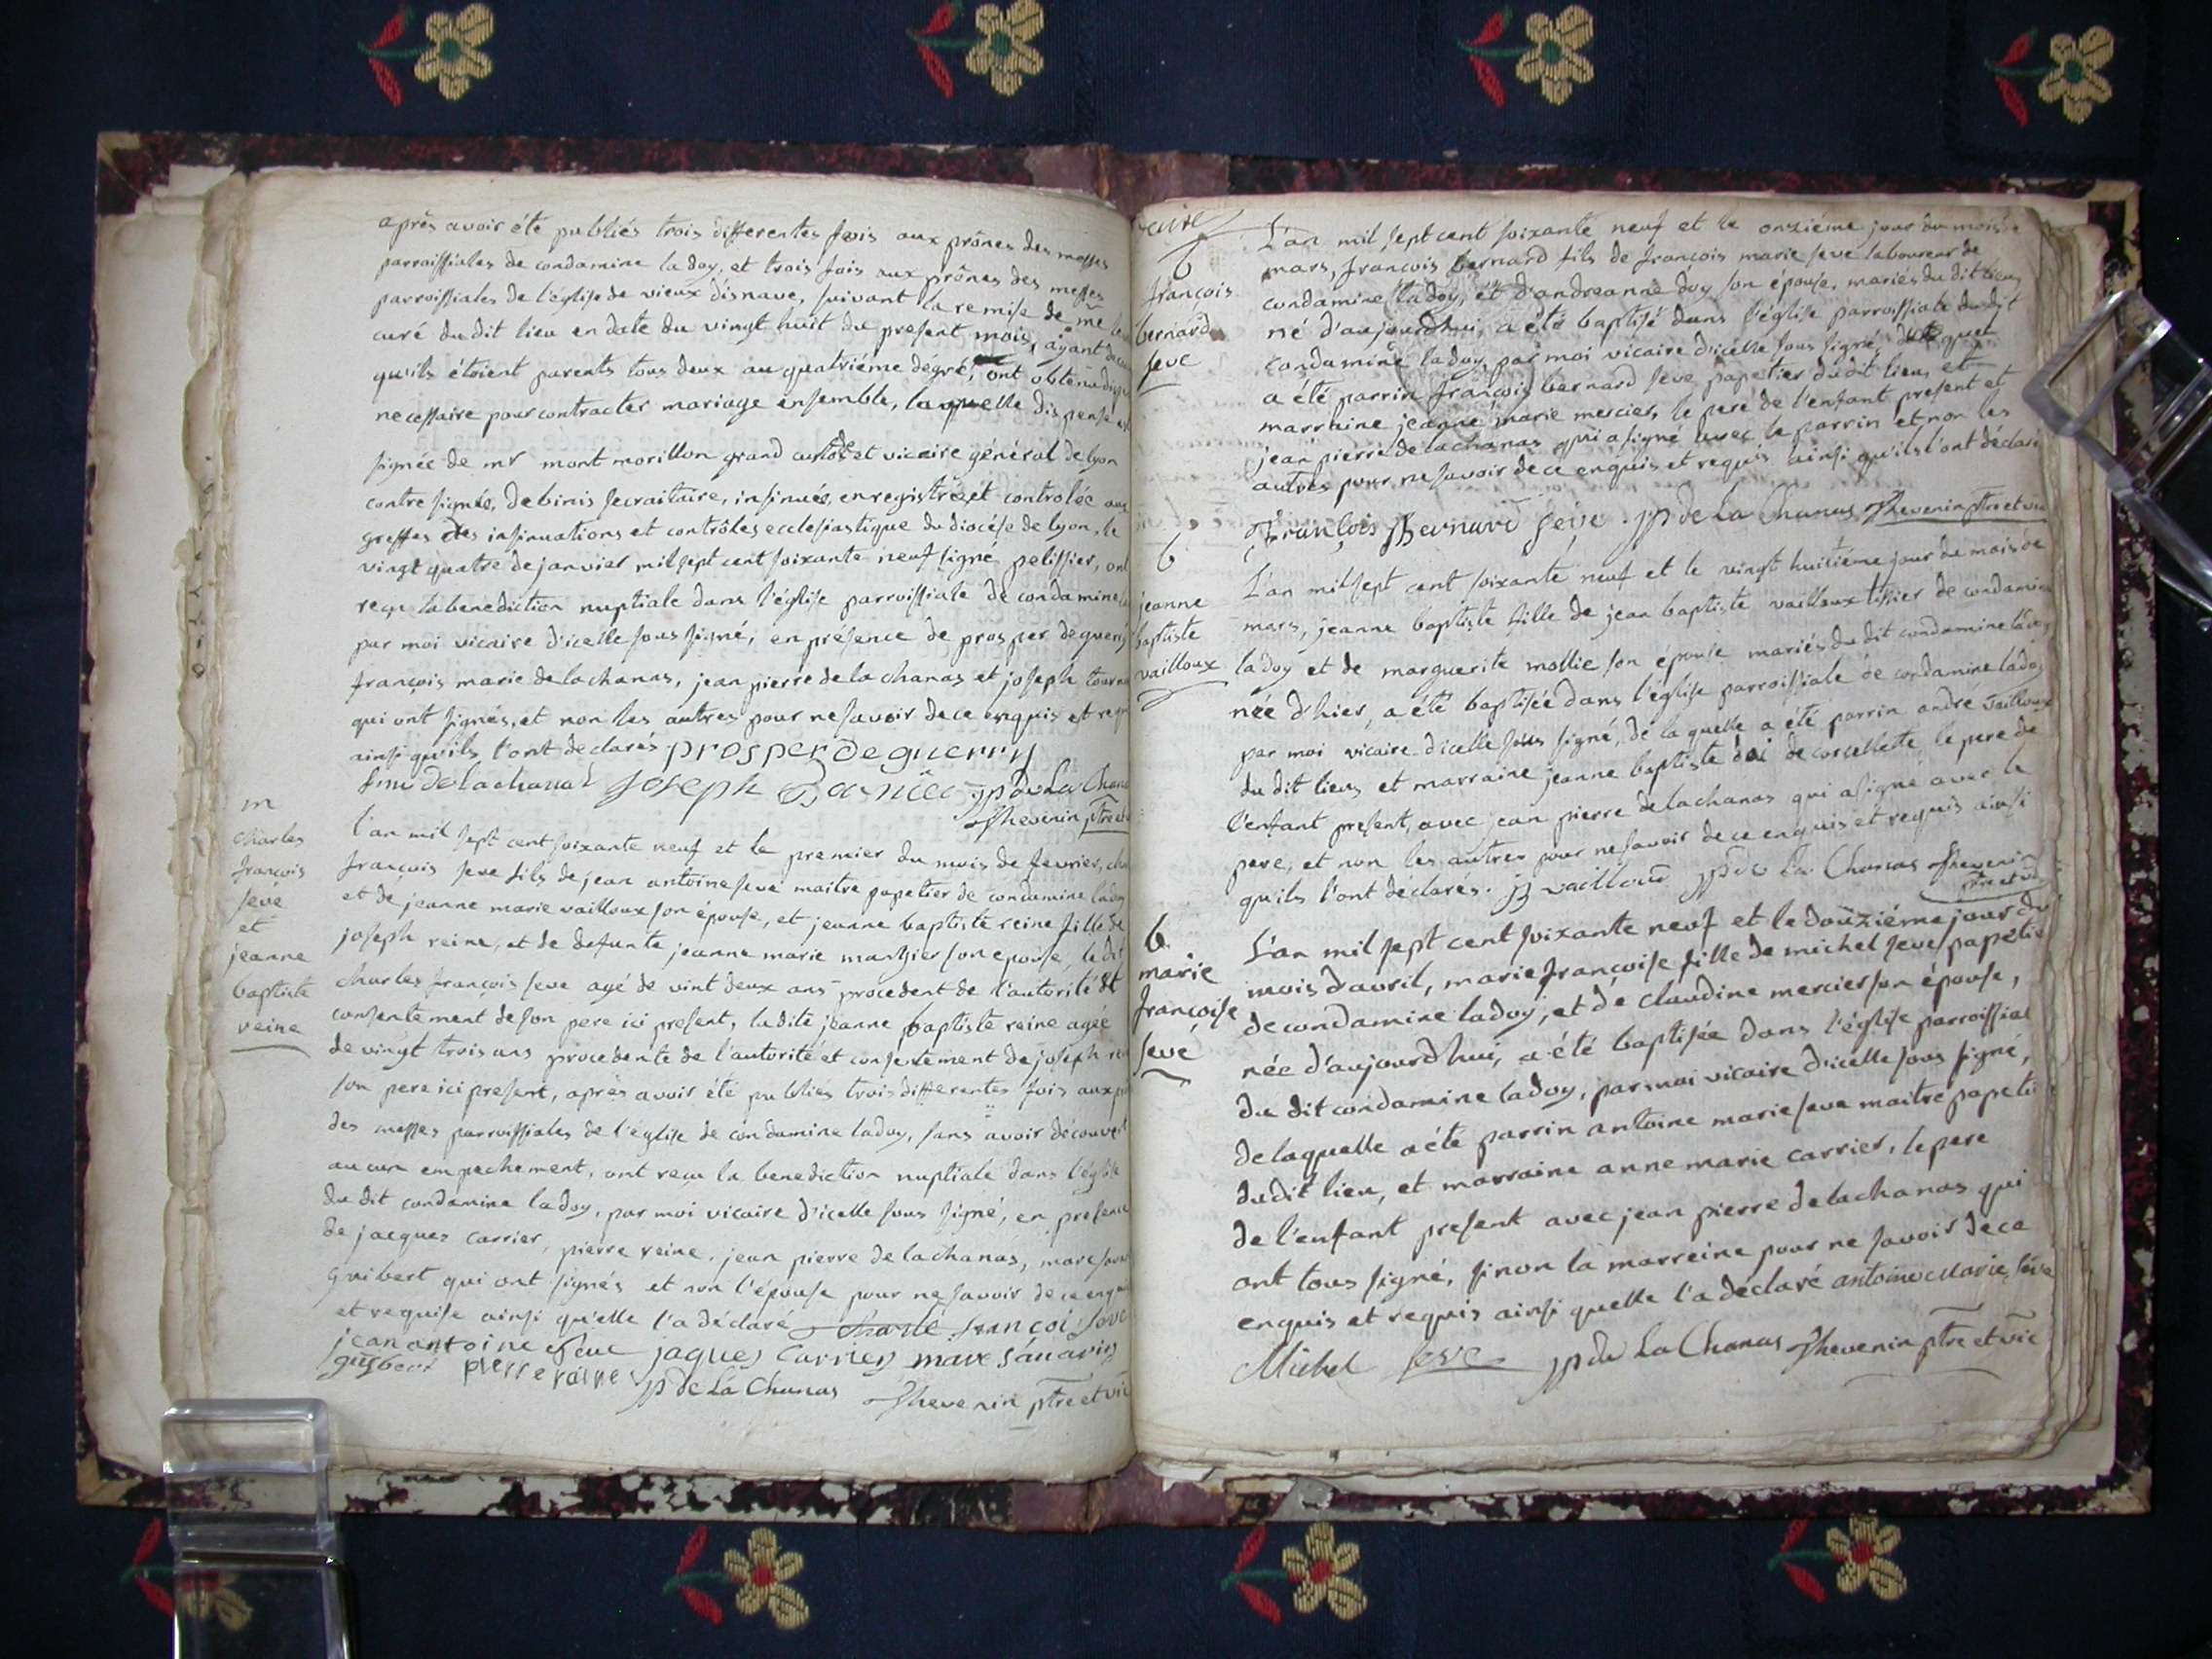 après avoir été publiés trois differentes fois aux prônes des messes
parroissiales de condamine la doy, et trois fois aux prônes des messes
parroissiales de l'église de vieux disnave, suivant la remise de mr
curé du dit lieu en date du vingt huit du present mois, ayant
qu'ils étoient parents tous deux au quatriéme dégré, ont obtenu
necessaire pour contracter mariage ensemble, laquelle dispense
signée de mr mont morillon grand custode et vicaire général de lyon
contre signée, debinis secraitaire, insinuée, enregistrée et controlée aux
greffes des insinuations et contrôles ecclesiastique du diocése de lyon, le
vingt quatre de janvier mil sept cent soixante neuf signé pelissier, ont
reçu la benediction nuptiale dans l'église parroissiale de condamine
par moi vicaire d'icelle sous signé, en présence de prosper deguerry
françois marie delachanas, jean pierre de la chanas et joseph
qui ont signés, et non les autres pour ne savoir de ce enquis et
ainsi qu'ils l'ont declarés prosper De guerry
delachanas joseph jp de La Chanas
Thevenin ptre et
m
charles
françois
seve
et
jeanne
baptiste
reine
l'an mil sept cent soixante neuf et le premier du mois de fevrier,
françois seve fils de jean antoine seve maitre papetier de condamine ladoy
et de jeanne marie vailloux son épouse, et jeanne baptiste reine fille de
joseph reine, et de defunte jeanne marie son epouse, le dit
charles françois seve agé de vint deux ans procedent de l'autorité et
consentement de son pere ici present, la dite jeanne baptiste reine agée
de vingt trois ans procedente de l'autorité et consentement de joseph
son pere ici present, après avoir été publiés trois differentes fois aux
des messes parroissiales de l'église de condamine ladoy, sans avoir découvert
aucun empechement, ont reçu la benediction nuptiale dans l'église
du dit condamine la doy, par moi vicaire d'icelle sous signé, en presence
de jacques carrier, pierre reine, jean pierre de lachanas, marc
guibert qui ont signés et non l'épouse pour ne savoir de ce
et requise ainsi qu'elle l'a déclaré charle françoi seve
jean antoine seve jaques Carrier marc
guibert pierre raine jp de La Chanas Thevenin ptre et vic
b
françois
bernard
seve
L'an mil sept cent soixante neuf et le onziéme jour du mois de
mars, françois bernard fils de françois marie seve laboureur de
condamine ladoy, et d'andreanne doy son épouse, mariés du dit lieu,
né d'aujourdhui, a été baptisé dans l'église parroissiale du dit
condamine ladoy, par moi vicaire d'icelle sous signé, duquel
a été parrin françois bernard seve papetier du dit lieu, et
marraine jeanne marie mercier, le pere de l'enfant present et
jean pierre de lachanas qui a signé avec le parrin et non les
autres pour ne savoir de ce enquis et requis ainsi qu'ils l'ont déclaré
François Bernard Seve . jp de La Chanas Thevenin ptre et vic
b
jeanne
baptiste
vailloux
L'an mil sept cent soixante neuf et le vingt huitiéme jour du mois de
mars, jeanne baptiste fille de jean baptiste vailloux tissier de condamine
ladoy et de marguerite mollie son épouse mariés du dit condamine ladoy
née d'hier, a été baptisée dans l'église parroissiale de condamine ladoy
par moi vicaire d'icelle sous signé, de la quelle a été parrin andré vailloux
du dit lieu, et marraine jeanne baptiste de corcellette, le pere de
l'enfant present, avec jean pierre delachanas qui a signé avec le
pere, et non les autres pour ne savoir de ce enquis et requis ainsi
qu'ils l'ont déclarés. jb vailloud jp de La Chanas Thevenin
ptre et vic
b
marie
françoise
seve
L'an mil sept cent soixante neuf et le douziéme jour du
mois d'avril, marie françoise fille de michel seve papetie
de condamine ladoy, et de claudine mercier son épouse,
née d'aujourdhui, a été baptisée dans l'église parroissial
du dit condamine ladoy, par moi vicaire d'icelle sous signé,
de laquelle a été parrin antoine marie seve maitre papetie
du dit lieu, et marraine anne marie carrier, le pere
de l'enfant present avec jean pierre delachanas qui
ont tous signé, sinon la marreine pour ne savoir de ce
enquis et requis ainsi quelle l'a déclaré antoine Marie seve
Michel seve jp de La Chanas Thevenin ptre et vic